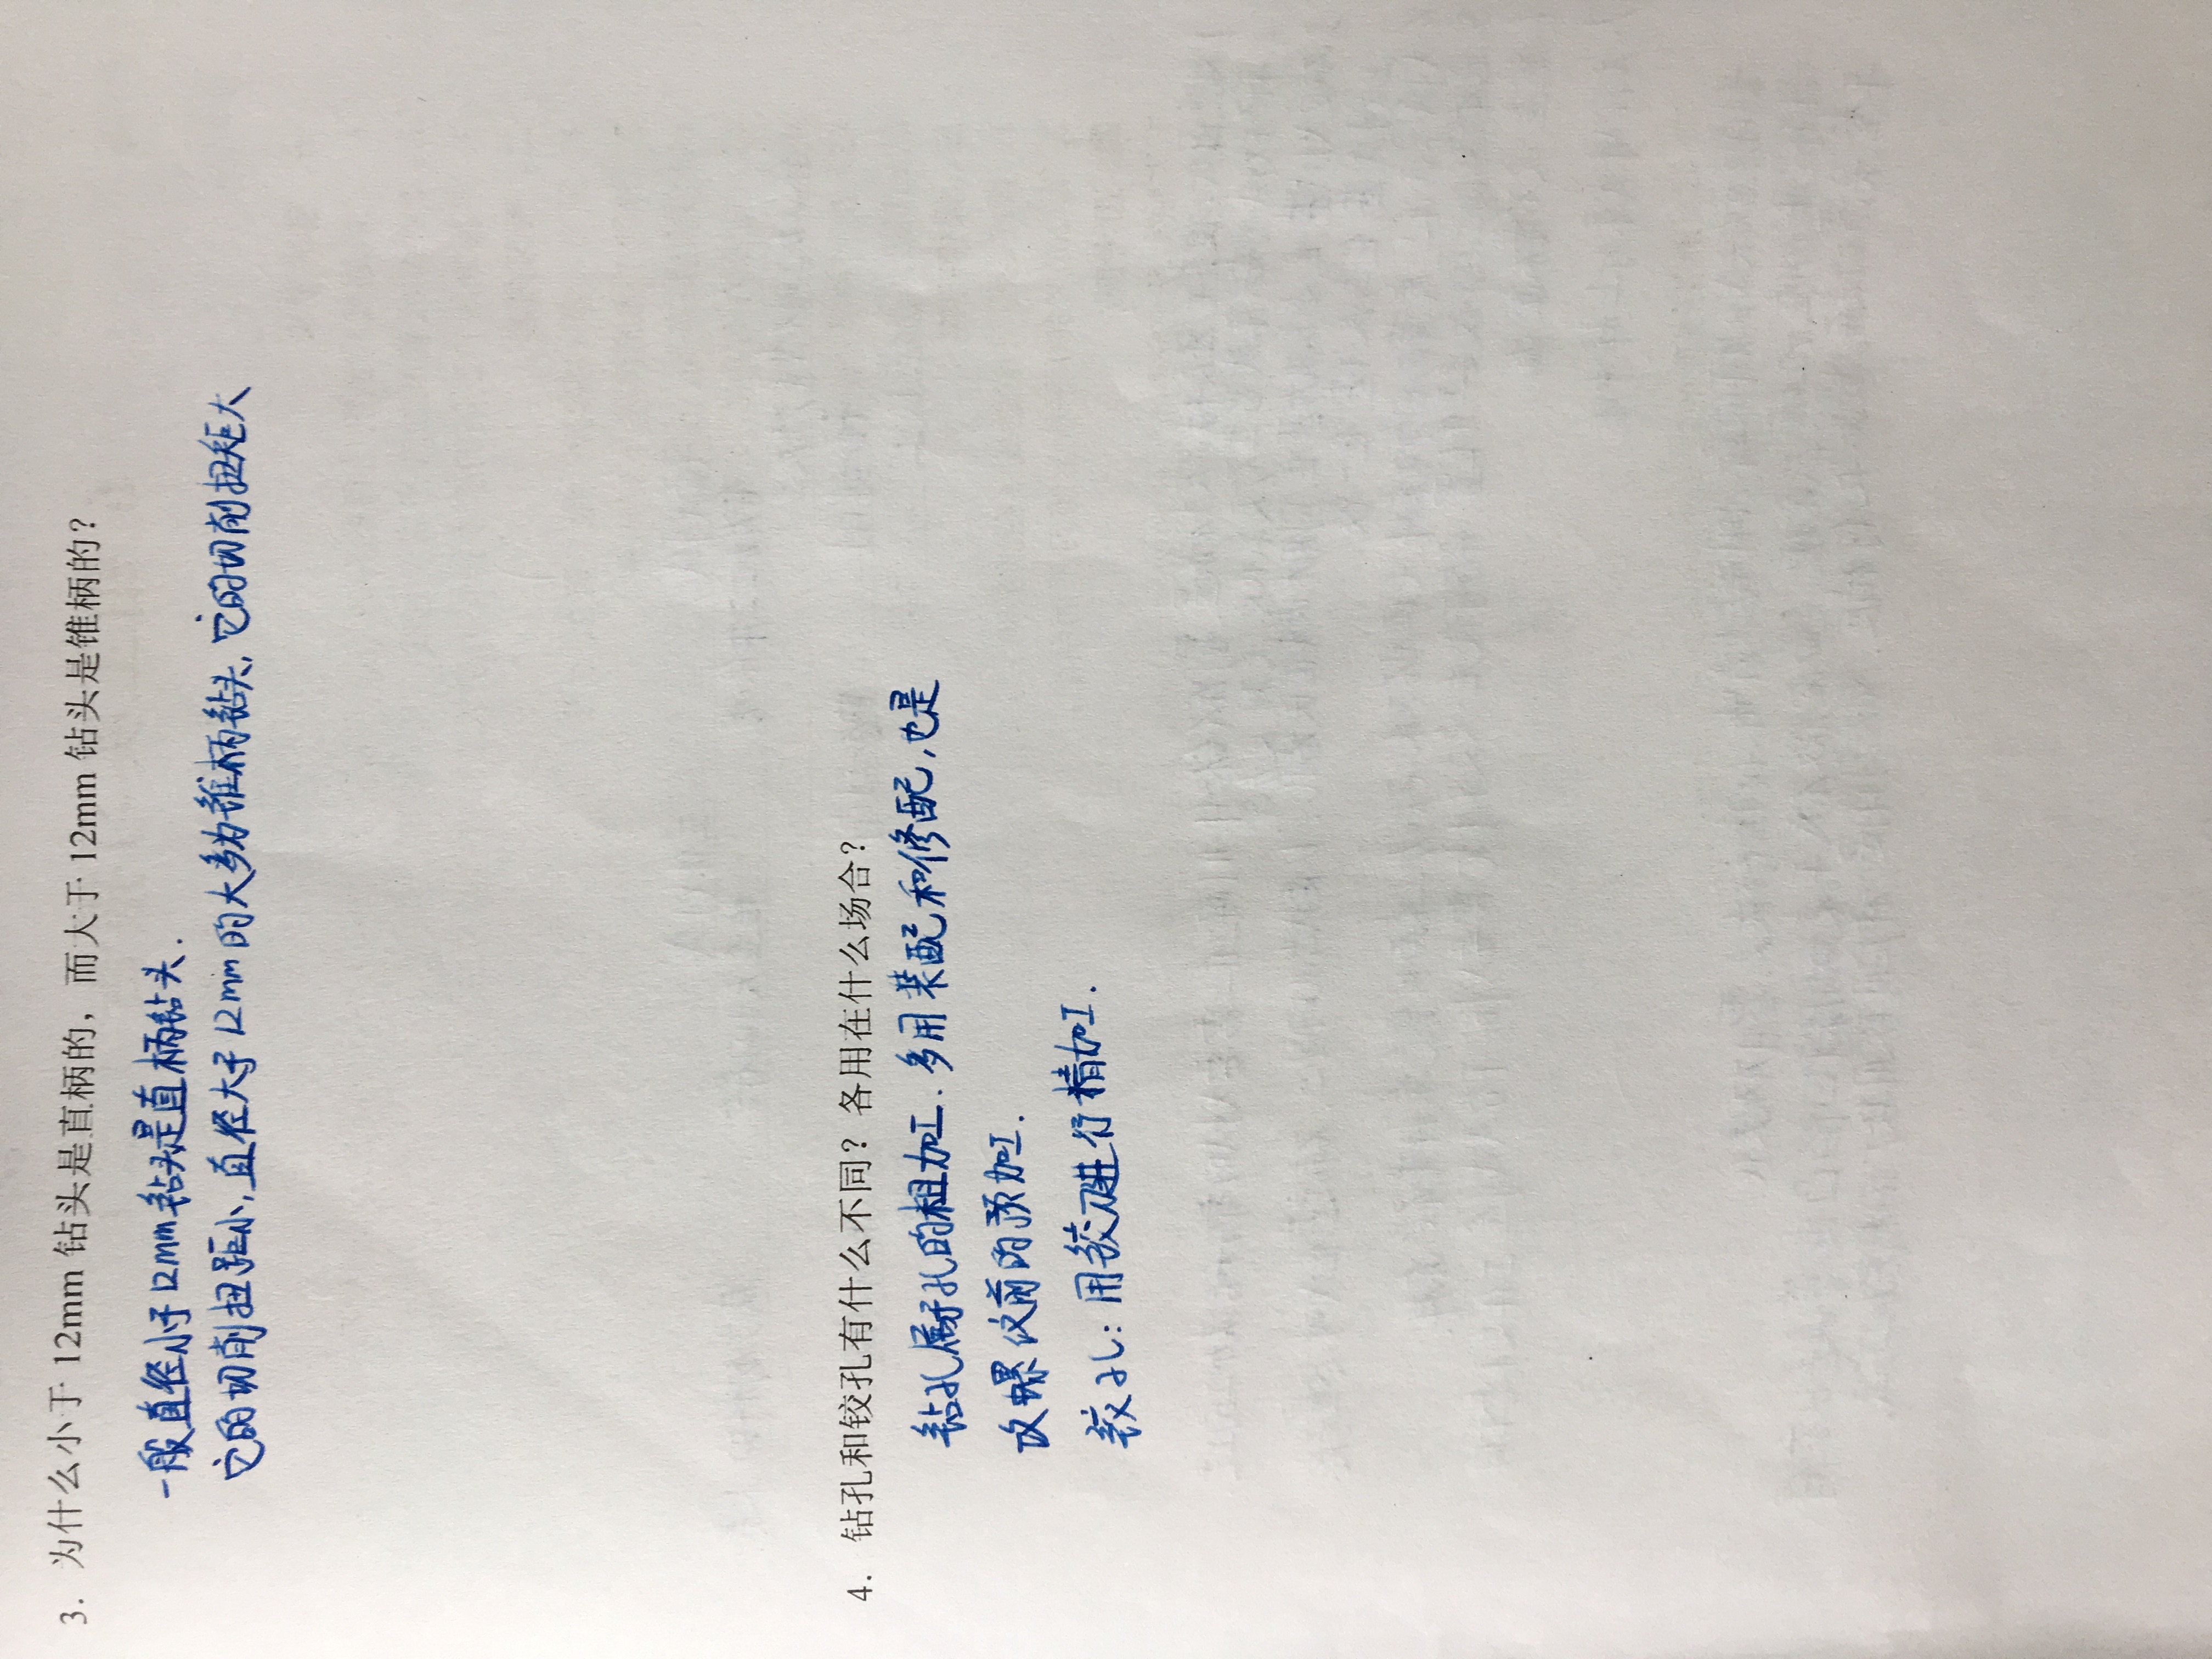 3. 为什么小于 12mm 钻头是直柄的，而大于 12mm 钻头是锥柄的？
一般直径小于12mm钻头是直柄钻头.
它的切削扭距小,直径大于12mm的大多为锥柄钻头,它的切削扭矩大
4. 钻孔和铰孔有什么不同？各用在什么场合？
钻孔属于孔的粗加工.多用装配和修配,也是
攻螺纹前的预加工.
铰孔:用铰刀进行精加工.